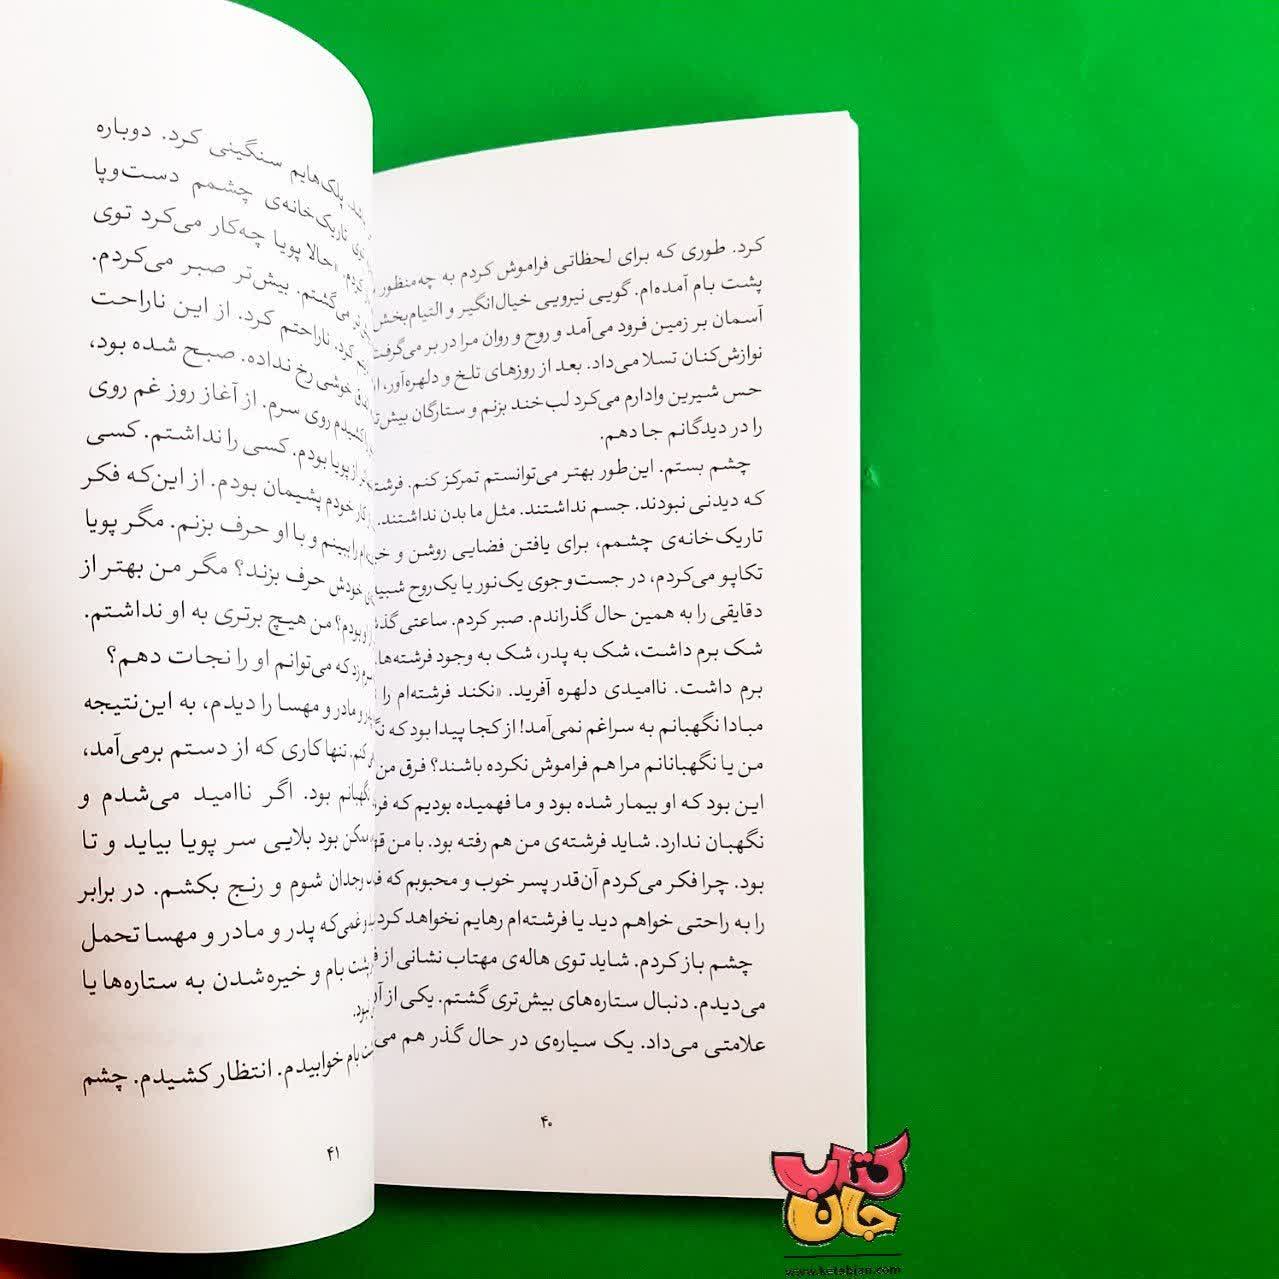 کرد. طوری که برای لحظاتی فراموش کردم به چه‌منظور
پشت بام آمده‌ام. گویی نیرویی خیال‌انگیز و التیام‌بخش
آسمان بر زمین فرود می‌آمد و روح و روان مرا در بر می‌گرفت
نوازش‌کنان تسلا می‌داد. بعد از روزهای تلخ و دلهره‌آور،
حس شیرین وادارم می‌کرد لب‌خند بزنم و ستارگان
را در دیدگانم جا دهم.
چشم بستم. این‌طور بهتر می‌توانستم تمرکز کنم.
که دیدنی نبودند. جسم نداشتند. مثل ما بدن نداشتند.
تاریک‌خانه‌ی چشمم، برای یافتن فضایی روشن و
تکاپو می‌کردم، در جست‌وجوی یک‌نور یا یک‌روح
دقایقی را به همین حال گذراندم. صبر کردم. ساعتی
شک برم داشت، شک به پدر، شک به وجود فرشته‌ها.
برم داشت. ناامیدی دلهره آفرید. «نکند فرشته‌ام را
مبادا نگهبانم به سراغم نمی‌آمد! از کجا پیدا بود که
من یا نگهبانانم مرا هم فراموش نکرده باشند؟ فرق من
این بود که او بیمار شده بود و ما فهمیده بودیم که
نگهبان ندارد. شاید فرشته‌ی من هم رفته بود. با من
بود. چرا فکر می‌کردم آن‌قدر پسر خوب و محبوبم که
را به راحتی خواهم دید یا فرشته‌ام رهایم نخواهد کرد
چشم باز کردم. شاید توی هاله‌ی مهتاب نشانی از
می‌دیدم. دنبال ستاره‌های بیش‌تری گشتم. یکی از
علامتی می‌داد. یک سیاره‌ی در حال گذر هم
۴۰
پلک‌هایم سنگینی کرد. دوباره
تاریک‌خانه‌ی چشمم دست‌وپا
«حالا پویا چه‌کار می‌کرد توی
می‌گشتم. بیش‌تر صبر می‌کردم.
کرد. ناراحتم کرد. از این ناراحت
خوشی رخ نداده. صبح شده بود،
کشیدم روی سرم. از آغاز روز غم روی
از پویا بودم. کسی را نداشتم. کسی
کار خودم پشیمان بودم. از این‌که فکر
را ببینم و با او حرف بزنم. مگر پویا
خودش حرف بزند؟ مگر من بهتر از
بودم؟ من هیچ برتری به او نداشتم.
زد که می‌توانم او را نجات دهم؟
و مادر و مهسا را دیدم، به این‌نتیجه
کنم. تنها کاری که از دستم برمی‌آمد،
نگهبانم بود. اگر ناامید می‌شدم و
ممکن بود بلایی سر پویا بیاید و تا
وجدان شوم و رنج بکشم. در برابر
غمی‌که پدر و مادر و مهسا تحمل
پشت بام و خیره‌شدن به ستاره‌ها یا
نبود.
بام خوابیدم. انتظار کشیدم. چشم
۴۱
کتاب
جان
www.ketabjan.com